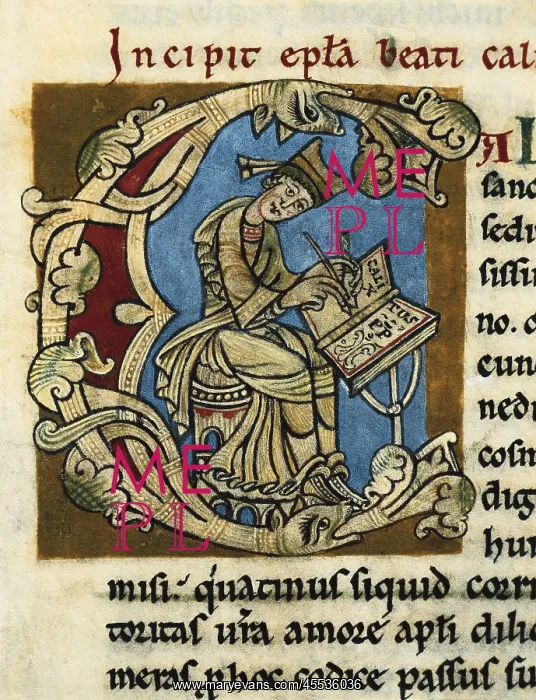 Incipit epła beati cali
AL
sanc
sedi
sissi
no. c
cunc
nedi
cosm
dig
hun
CALI
X
TUS
EPS
misi. quatinus siquid corri
toritas ura amore apli dili
meras phos codice passus su
ME
PL
ME
PL
www.maryevans.com/45536036